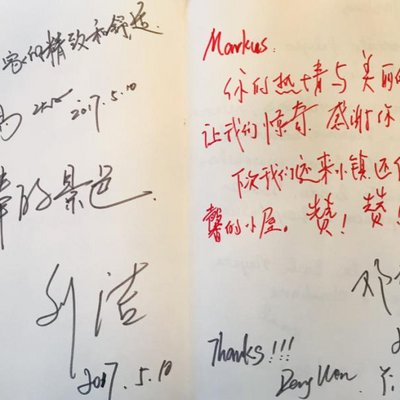 家的精致和舒适
2017.5.10
的景色
刘洁
2017.5.10
Markus:
你的热情与美丽的
让我们惊奇.感谢你
下次我们还来小镇,还住
馨的小屋。赞!赞!
邓
Thanks!!!